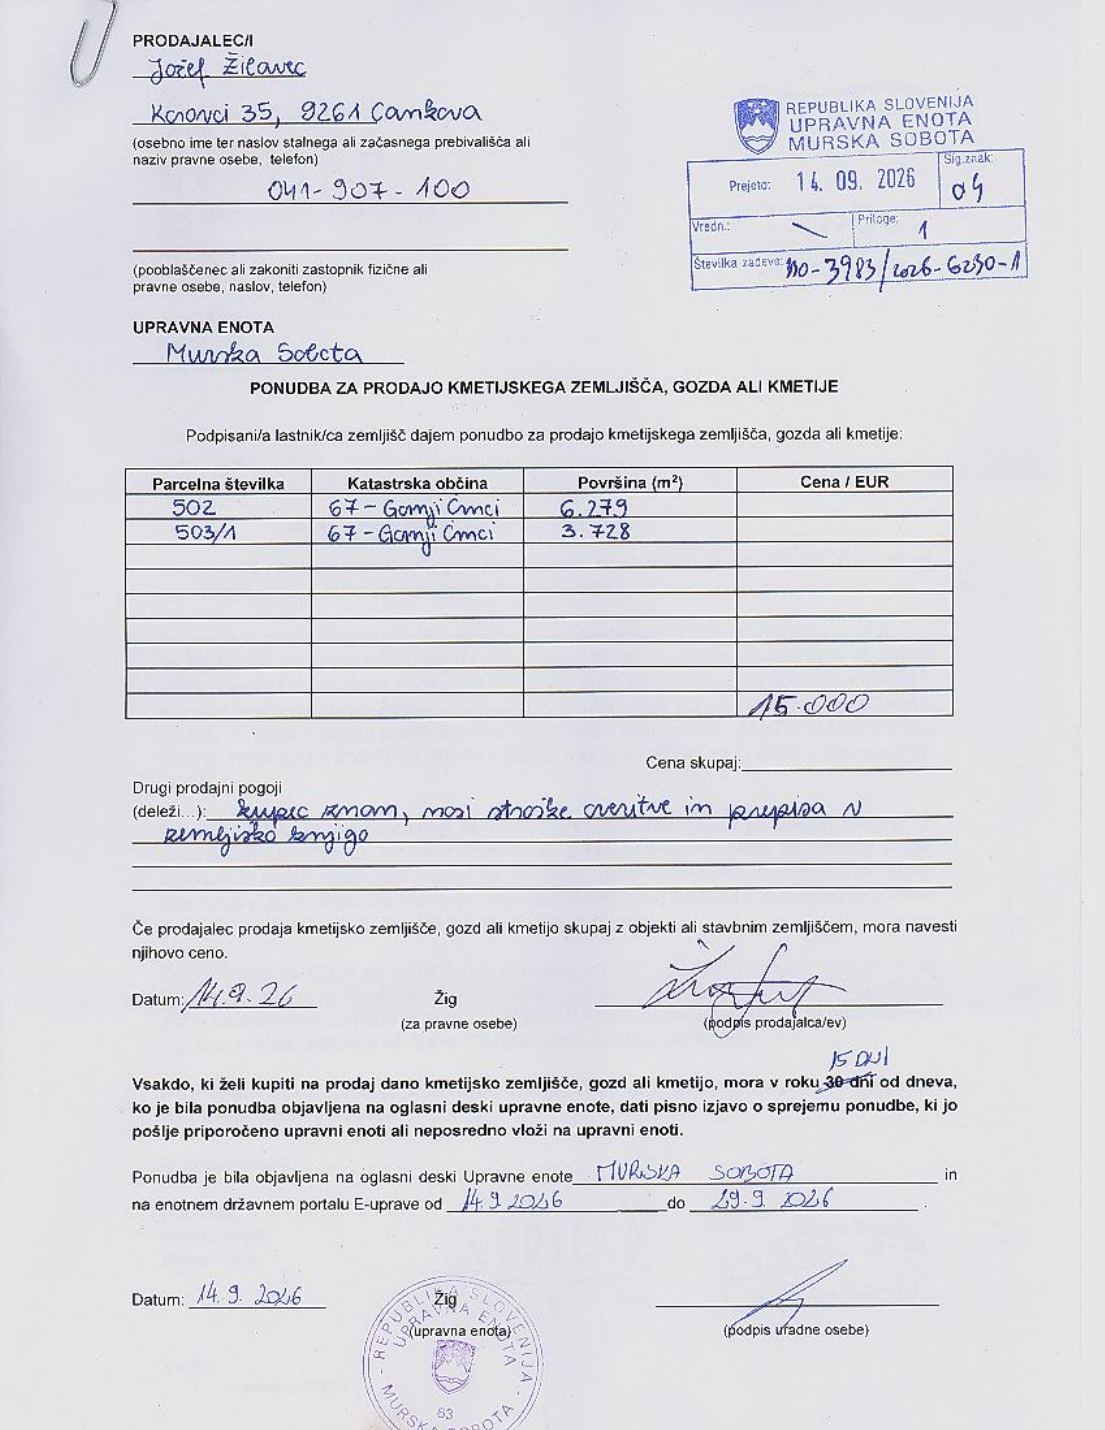 PRODAJALEC/I
Jožef Žilavec
Korovci 35, 9261 Cankova
(osebno ime ter naslov stalnega ali začasnega prebivališča ali
naziv pravne osebe, telefon)
041-907-100
(pooblaščenec ali zakoniti zastopnik fizične ali
pravne osebe, naslov, telefon)
REPUBLIKA SLOVENIJA
UPRAVNA ENOTA
MURSKA SOBOTA
Prejeto: 14. 09. 2026 Sig.znak: 04
Vredn.: \ Priloge: 1
Številka zadeve: 330-3983/2026-6230-1
UPRAVNA ENOTA
Murska Sobota
PONUDBA ZA PRODAJO KMETIJSKEGA ZEMLJIŠČA, GOZDA ALI KMETIJE
Podpisani/a lastnik/ca zemljišč dajem ponudbo za prodajo kmetijskega zemljišča, gozda ali kmetije:
Parcelna številka Katastrska občina Površina (m²) Cena / EUR
502 67 - Gornji Črnci 6.279
503/1 67 - Gornji Črnci 3.728
15.000
Cena skupaj:
Drugi prodajni pogoji
(deleži...): kupec znan, nosi stroške overitve in prepisa v
zemljiško knjigo
Če prodajalec prodaja kmetijsko zemljišče, gozd ali kmetijo skupaj z objekti ali stavbnim zemljiščem, mora navesti
njihovo ceno.
Datum: 14.9.26 Žig
(za pravne osebe) (podpis prodajalca/ev)
15 DNI
Vsakdo, ki želi kupiti na prodaj dano kmetijsko zemljišče, gozd ali kmetijo, mora v roku 30 dni od dneva,
ko je bila ponudba objavljena na oglasni deski upravne enote, dati pisno izjavo o sprejemu ponudbe, ki jo
pošlje priporočeno upravni enoti ali neposredno vloži na upravni enoti.
Ponudba je bila objavljena na oglasni deski Upravne enote MURSKA SOBOTA in
na enotnem državnem portalu E-uprave od 14.9.2026 do 29.9.2026 .
Datum: 14.9.2026 Žig
(upravna enota) (podpis uradne osebe)
REPUBLIKA SLOVENIJA
UPRAVNA ENOTA
MURSKA SOBOTA
63